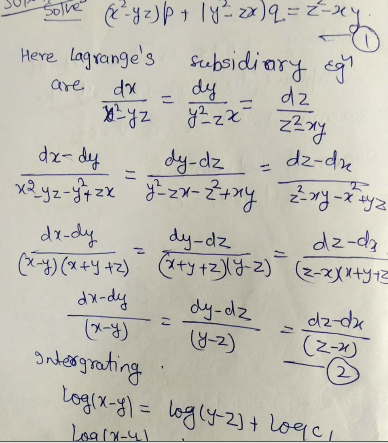 Solve (x²-yz)p + (y²-zx)q = z²-xy
①
Here Lagrange's subsidiary eqⁿ
are dx/x²-yz = dy/y²-zx = dz/z²-xy
dx-dy/x²-yz-y²+zx = dy-dz/y²-zx-z²+xy = dz-dx/z²-xy-x²+yz
dx-dy/(x-y)(x+y+z) = dy-dz/(x+y+z)(y-z) = dz-dx/(z-x)(x+y+z
dx-dy/(x-y) = dy-dz/(y-z) = dz-dx/(z-x)
②
Intergrating.
log(x-y) = log(y-z) + log c₁
log(x-y)